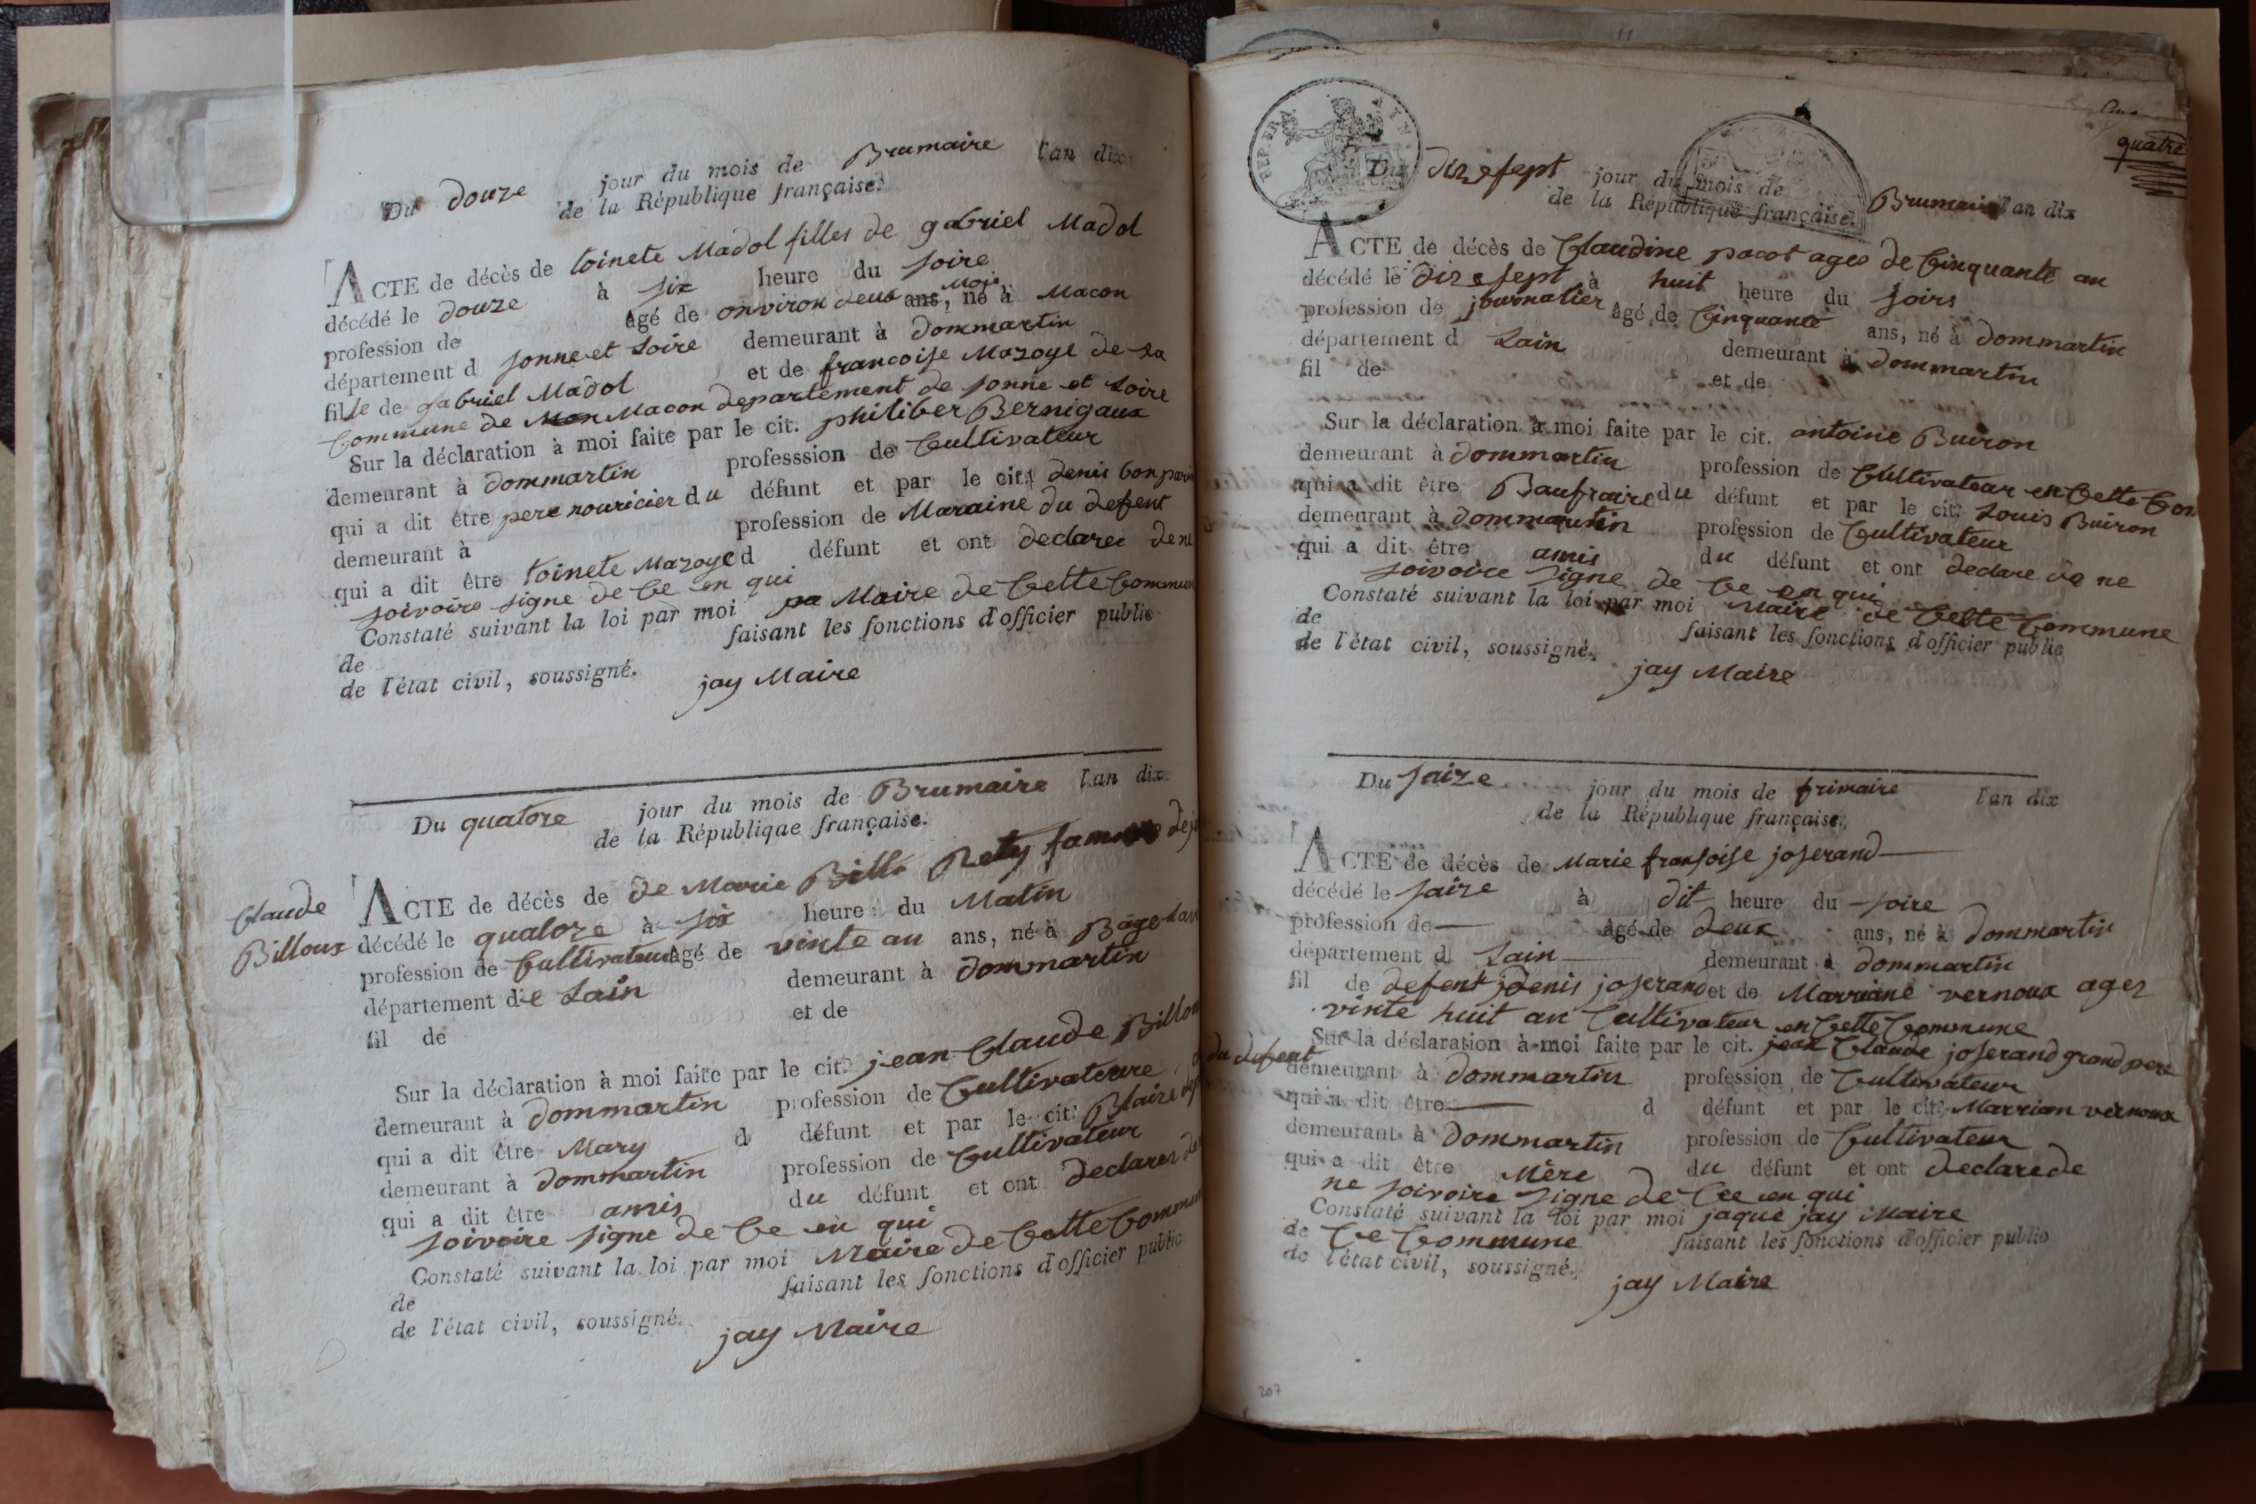 Du douze jour du mois de Brumaire l'an dix
de la République française.
ACTE de décès de toinete Madol filles de gabriel Madol
décédé le douze à six heure du soire
profession de âgé de onviron deux ans, Mois né à Macon
département d sonne et Loire demeurant à dommartin
fille de gabriel Madol et de francoise Mazoye de la
Commune de Macon departement de sonne et Loire
Sur la déclaration à moi faite par le cit. philiber Bernigaux
demeurant à dommartin professsion de Cultivateur
qui a dit être pere nouricier du défunt et par le cit. denis
demeurant à profession de Maraine du defent
qui a dit être toinete Mazoye d défunt et ont declarer de ne
soivoire signe de Ce en qui
Constaté suivant la loi par moi Maire de Cette Commune
de faisant les fonctions d'officier public
de l'état civil, soussigné.
jay Maire
Du quatore jour du mois de Brumaire l'an dix
de la République française.
Claude
Billoux
ACTE de décès de de Marie Rety famme de
décédé le quatore à six heure du Matin
profession de Cultivateur âgé de vinte an ans, né à Bage
département de Lain demeurant à dommartin
fil de et de
Sur la déclaration à moi faite par le cit. jean Claude Billoux
demeurant à dommartin profession de Cultivateure
qui a dit être Mary d défunt et par le cit. Blaise
demeurant à dommartin profession de Cultivateur
qui a dit être amis du défunt et ont declarer de
soivoire signe de Ce en qui
Constaté suivant la loi par moi Maire de Cette Commune
de faisant les fonctions d'officier public
de l'état civil, soussigné.
jay Maire
REP. FRA
quatre
Du dizesept jour du mois de Brumaire l'an dix
de la République française.
ACTE de décès de Claudine pacot ages de Cinquante an
décédé le dizesept à huit heure du soirs
profession de journalier âgé de Cinquante ans, né à dommartin
département d Lain demeurant à dommartin
fil de et de
Sur la déclaration à moi faite par le cit. antoine Buiron
demeurant à dommartin profession de Cultivateur en Cette Com
qui a dit être Baufraire du défunt et par le cit. Louis Buiron
demeurant à dommartin profession de Cultivateur
qui a dit être amis du défunt et ont declare de ne
soivoire signe de Ce en qui
Constaté suivant la loi par moi Maire de Cette Commune
de faisant les fonctions d'officier public
de l'état civil, soussigné.
jay Maire
Du saize jour du mois de frimaire l'an dix
de la République française.
ACTE de décès de Marie fransoise joserand
décédé le saize à dit heure du soire
profession de âgé de deux ans, né à dommartin
département d Lain demeurant à dommartin
fil de defent denis joserand et de Marriane vernoux ages
vinte huit an Cultivateur en Cette Commune
Sur la déclaration à moi faite par le cit. jean Claude joserand grand pere
du defent
demeurant à dommartin profession de Cultivateur
qui a dit être d défunt et par le cit. Marrian vernoux
demeurant à dommartin profession de Cultivateur
qui a dit être Mère du défunt et ont declare de
ne soivoire signe de Cee en qui
Constaté suivant la loi par moi jaque jay Maire
de Ce Commune faisant les fonctions d'officier public
de l'état civil, soussigné.
jay Maire
207